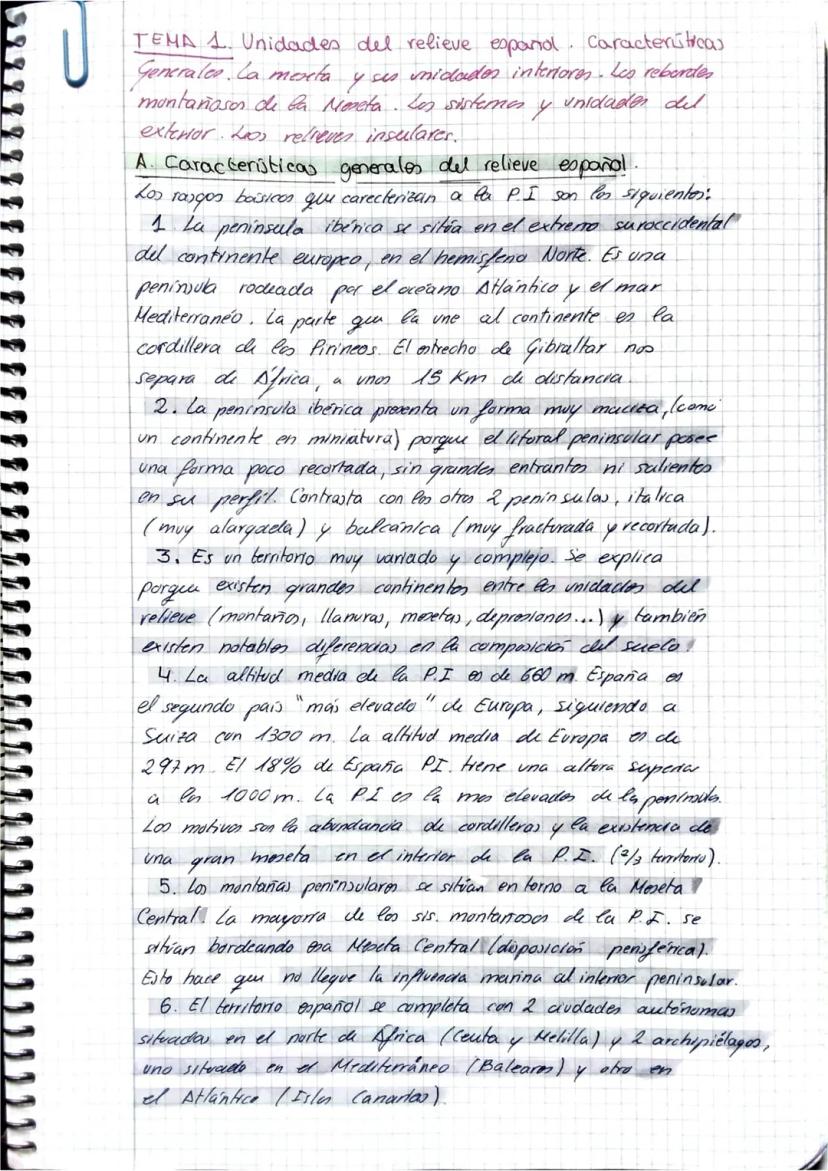 TEMA 1. Unidades del relieve español. Características
Generales. La meseta y sus unidades interiores. Los rebordes
montañosos de la Meseta. Los sistemas y unidades del
exterior. Los relieves insulares.
A. Características generales del relieve español.
Los rasgos básicos que carecterizan a la P.I son los siguientes:
1 La península ibérica se sitúa en el extremo suroccidental
del continente europeo, en el hemisferio Norte. Es una
península rodeada por el océano Atlántico y el mar
Mediterraneo. La parte que la une al continente es la
cordillera de los Pirineos. El estrecho de Gibraltar nos
separa de África, a unos 15 Km de distancia.
2. La península ibérica presenta un forma muy maciza, (como
un continente en miniatura) porque el litoral peninsular posee
una forma poco recortada, sin grandes entrantes ni salientes
en su perfil. Contrasta con los otros 2 penínsulas, itálica
(muy alargada) y balcánica (muy fracturada y recortada).
3. Es un territorio muy variado y complejo. Se explica
porque existen grandes continentes entre las unidades del
relieve (montañas, llanuras, mesetas, depresiones...) y también
existen notables diferencias en la composición del suelo.
4. La altitud media de la P.I es de 660 m. España es
el segundo país "más elevado" de Europa, siguiendo a
Suiza con 1300 m. La altitud media de Europa es de
297 m. El 18% de España PI. tiene una altura superior
a los 1000 m. La P.I es la mas elevadas de las península.
Los motivos son la abundancia de cordilleras y la existencia de
una gran meseta en el interior de la P.I. (2/3 territorio).
5. Las montañas peninsulares se sitúan en torno a la Meseta
Central. La mayoría de los sis. montañosos de la P.I. se
sitúan bordeando esa Meseta Central (disposición periférica).
Esto hace que no llegue la influencia marina al interior peninsular.
6. El territorio español se completa con 2 ciudades autónomas
situadas en el norte de África (Ceuta y Melilla) y 2 archipiélagos,
uno situado en el Mediterráneo (Baleares) y otro en
el Atlántico (Islas Canarias).